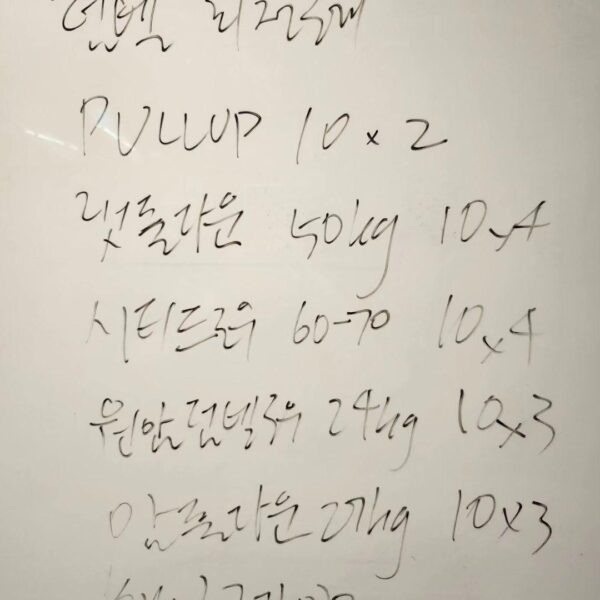 PULLUP 10 x 2
렛풀다운 50kg 10x4
시티드로우 60-70 10x4
원암덤벨로우 24kg 10x3
암풀다운 27kg 10x3